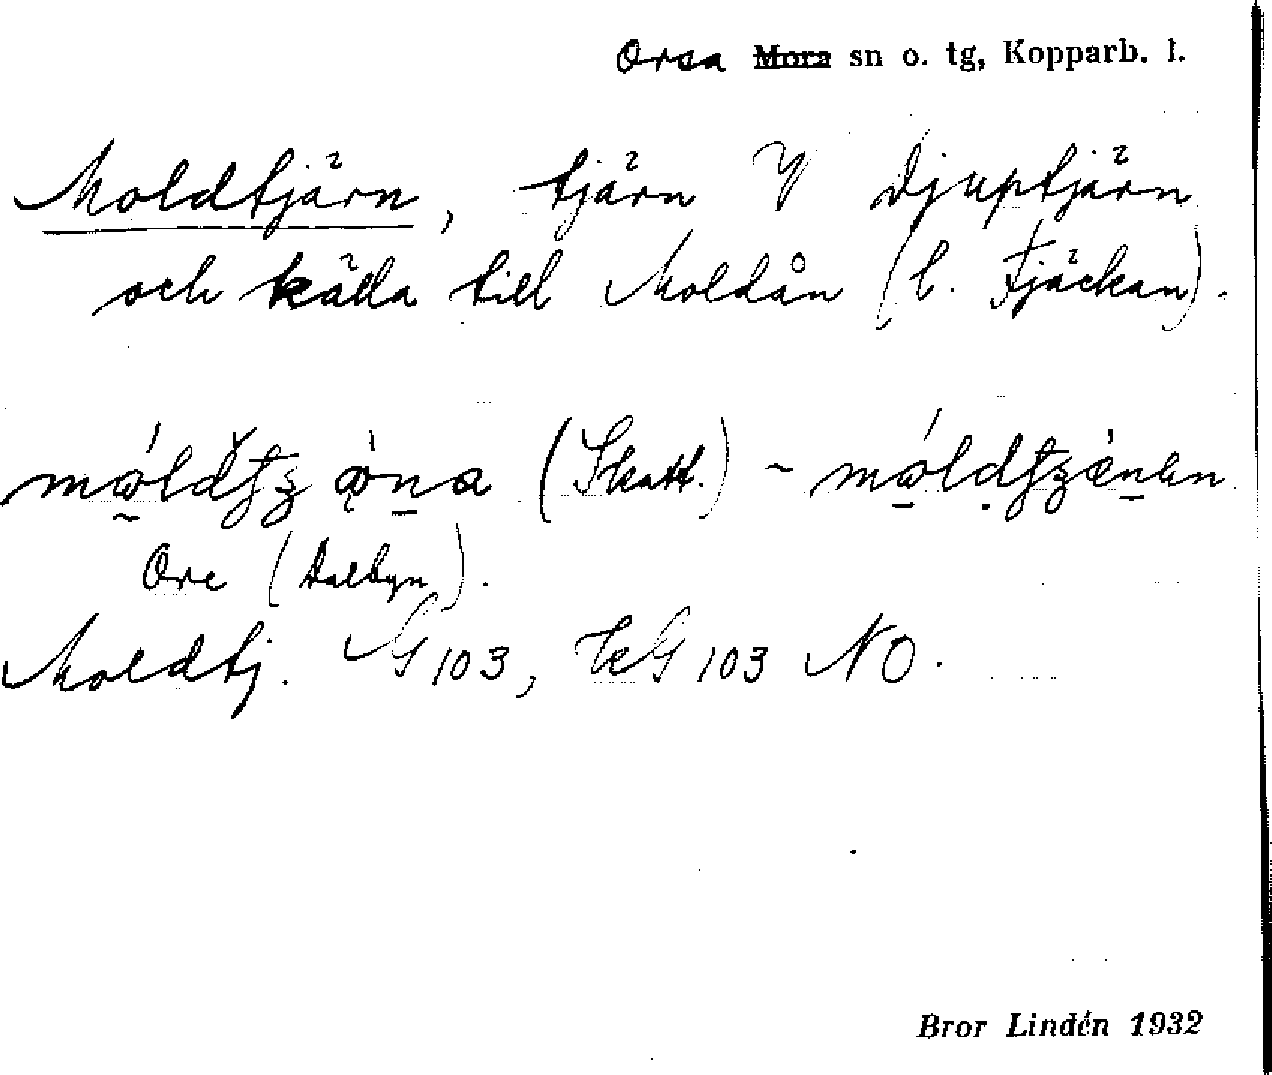 Orsa Mora sn o. tg, Kopparb. l.
Moldtjärn, tjärn V Djuptjärn
och källa till Moldån (l. Fjäckan).
(Skatt.) ~
Ore (Dalbyn).
Moldtj. G 103, G 103 NO.
Bror Lindén 1932